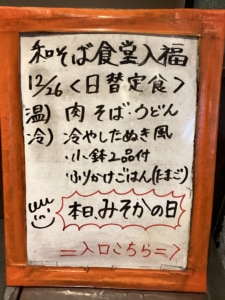 和そば食堂入福
12/26〈日替定食〉
温) 肉そば・うどん
冷) 冷やしたぬき風
・小鉢2品付
・ふりかけごはん(たまご)
本日、みそかの日
=入口こちら=>